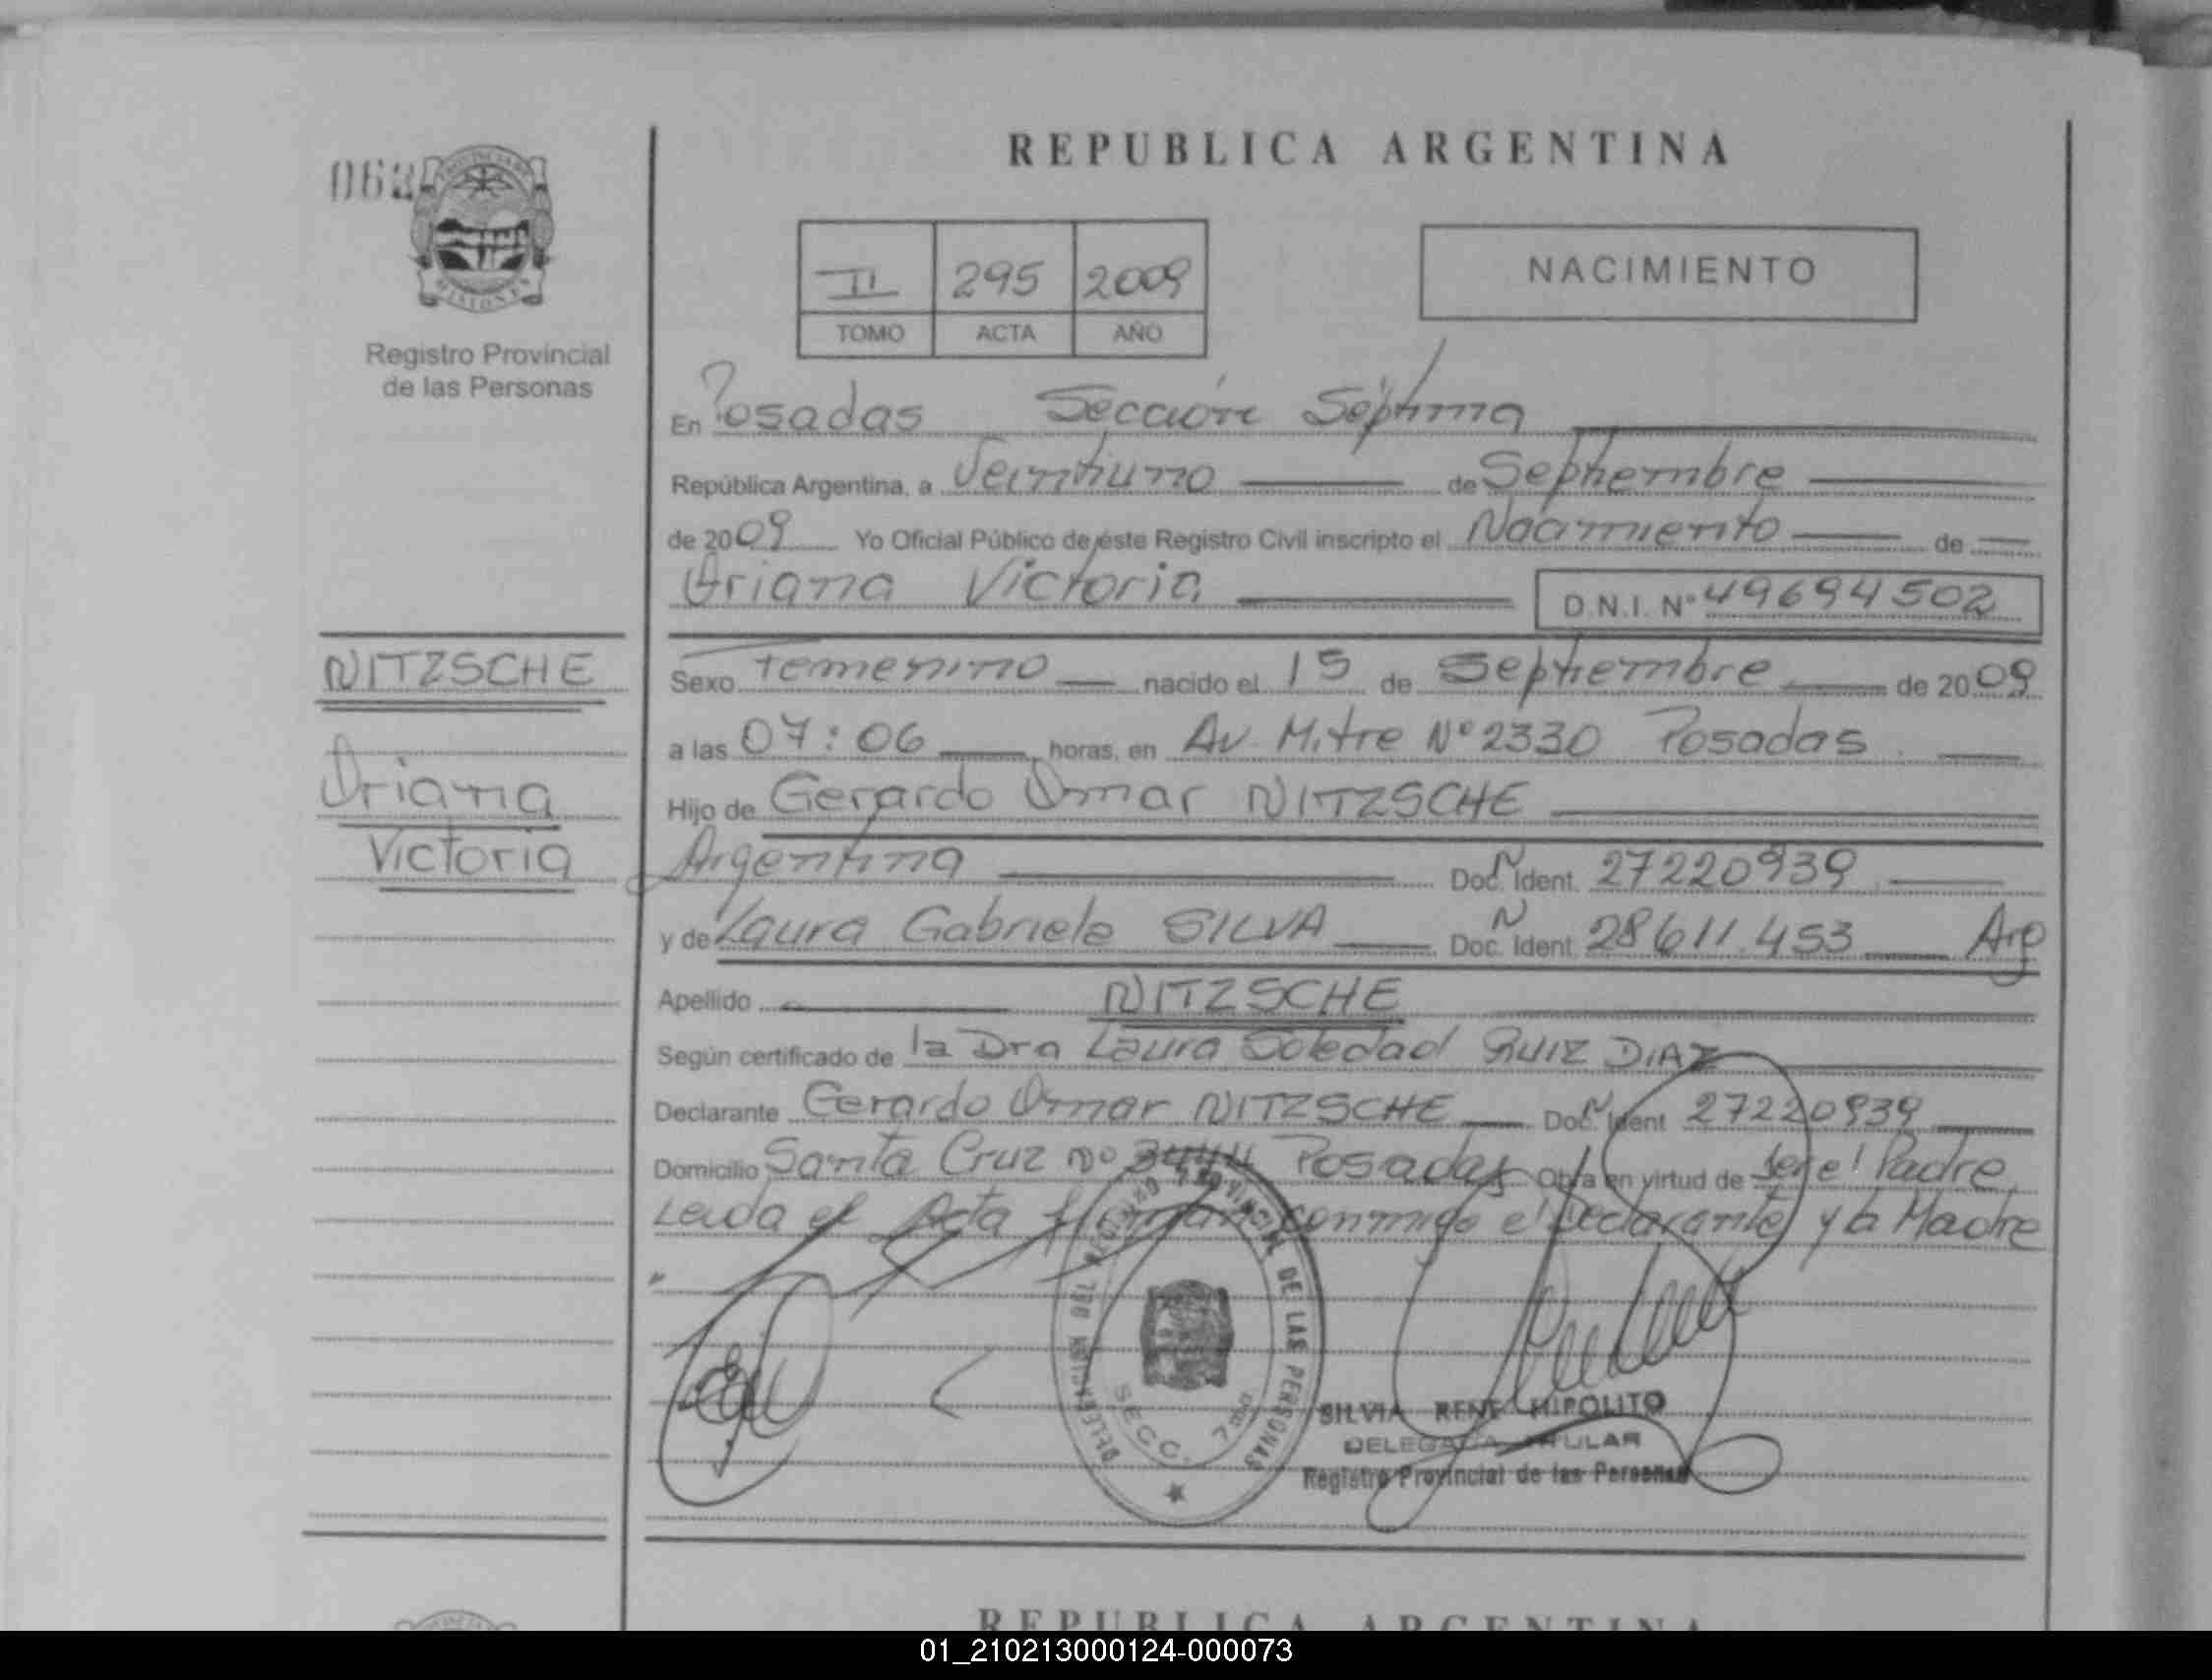 REPUBLICA ARGENTINA
062
PROVINCIA DE
MISIONES
Registro Provincial
de las Personas
II 295 2009
TOMO ACTA AÑO
NACIMIENTO
En Posadas Sección Séptima
República Argentina, a Veintiuno de Septiembre
de 2009 Yo Oficial Público de éste Registro Civil inscripto el Nacimiento de
Oriana Victoria D.N.I. Nº 49694502
NITZSCHE
Oriana
Victoria
Sexo Femenino nacido el 15 de Septiembre de 2009
a las 07:06 horas, en Av. Mitre Nº 2330 Posadas
Hijo de Gerardo Omar NITZSCHE
Argentina Doc. Ident. 27220939
y de Laura Gabriela SILVA Doc. Ident. 28611.453 Arg
Apellido NITZSCHE
Según certificado de la Dra Laura Soledad RUIZ DIAZ
Declarante Gerardo Omar NITZSCHE Doc. Ident 27220939
Domicilio Santa Cruz Nº 3444 Posadas Obra en virtud de ser el Padre
Leida el Acta firman conmigo el Declarante y la Madre
DE LAS PERSONAS
SECC.
SILVIA RENE HIPOLITO
DELEGADA TITULAR
Registro Provincial de las Personas
REPUBLICA ARGENTINA
01_210213000124-000073